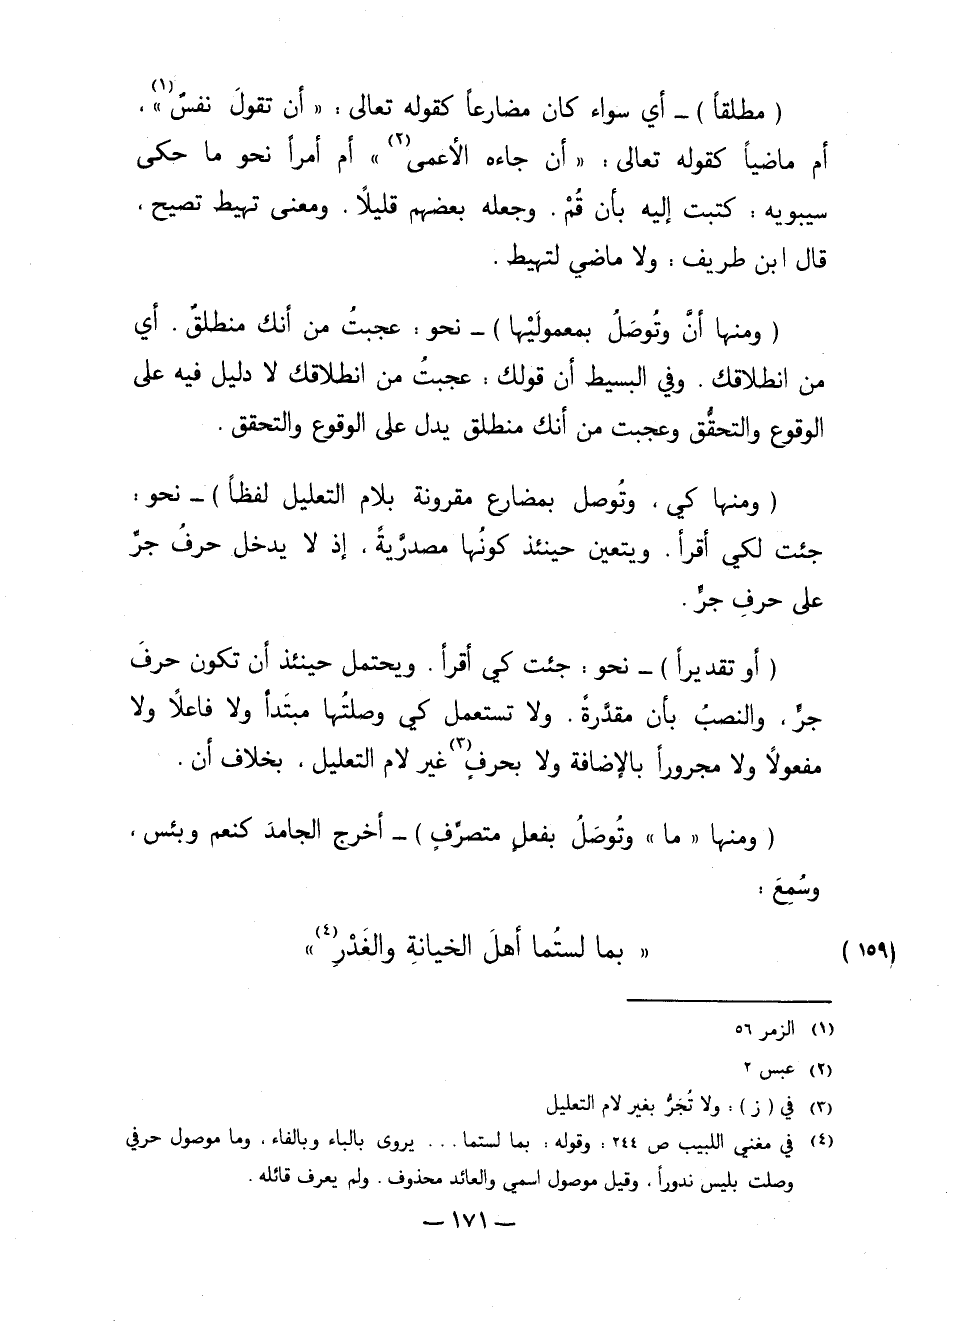 ( مطلقاً ) ــ أي سواء كان مضارعاً كقوله تعالى : « أن تقولَ نفسٌ(١) » ،
أم ماضياً كقوله تعالى : « أن جاءه الأعمى(٢) » أم أمراً نحو ما حكى
سيبويه : كتبت إليه بأن قُمْ . وجعله بعضهم قليلاً . ومعنى تهيط تصيح ،
قال ابن طريف : ولا ماضي لتهيط .
( ومنها أنَّ وتُوصَلُ بمعمولَيْها ) ــ نحو : عجبتُ من أنك منطلقٌ . أي
من انطلاقك . وفي البسيط أن قولك : عجبتُ من انطلاقك لا دليل فيه على
الوقوع والتحقُّق وعجبت من أنك منطلق يدل على الوقوع والتحقق .
( ومنها كي ، وتُوصل بمضارع مقرونة بلام التعليل لفظاً ) ــ نحو :
جئت لكي أقرأ . ويتعين حينئذ كونُها مصدرَّيةً ، إذ لا يدخل حرفُ جرٍّ
على حرفِ جرٍّ .
( أو تقديراً ) ــ نحو : جئت كي أقرأ . ويحتمل حينئذ أن تكون حرفَ
جرٍّ ، والنصبُ بأن مقدَّرةً . ولا تستعمل كي وصلتُها مبتَدأ ولا فاعلاً ولا
مفعولاً ولا مجروراً بالإضافة ولا بحرفٍ(٣) غير لام التعليل ، بخلاف أن .
( ومنها « ما » وتُوصَلُ بفعلٍ متصرَّفٍ ) ــ أخرج الجامدَ كنعم وبئس ،
وسُمِعَ :
(١٥٩) « بما لستُما أهلَ الخيانةِ والغَدْرِ(٤) »
(١) الزمر ٥٦
(٢) عبس ٢
(٣) في ( ز ) : ولا تُجَرُّ بغير لام التعليل
(٤) في مغني اللبيب ص ٢٤٤ : وقوله : بما لستما . . . يروى بالباء وبالفاء ، وما موصول حرفي
وصلت بليس ندوراً ، وقيل موصول اسمي والعائد محذوف . ولم يعرف قائله .
ــ ١٧١ ــ